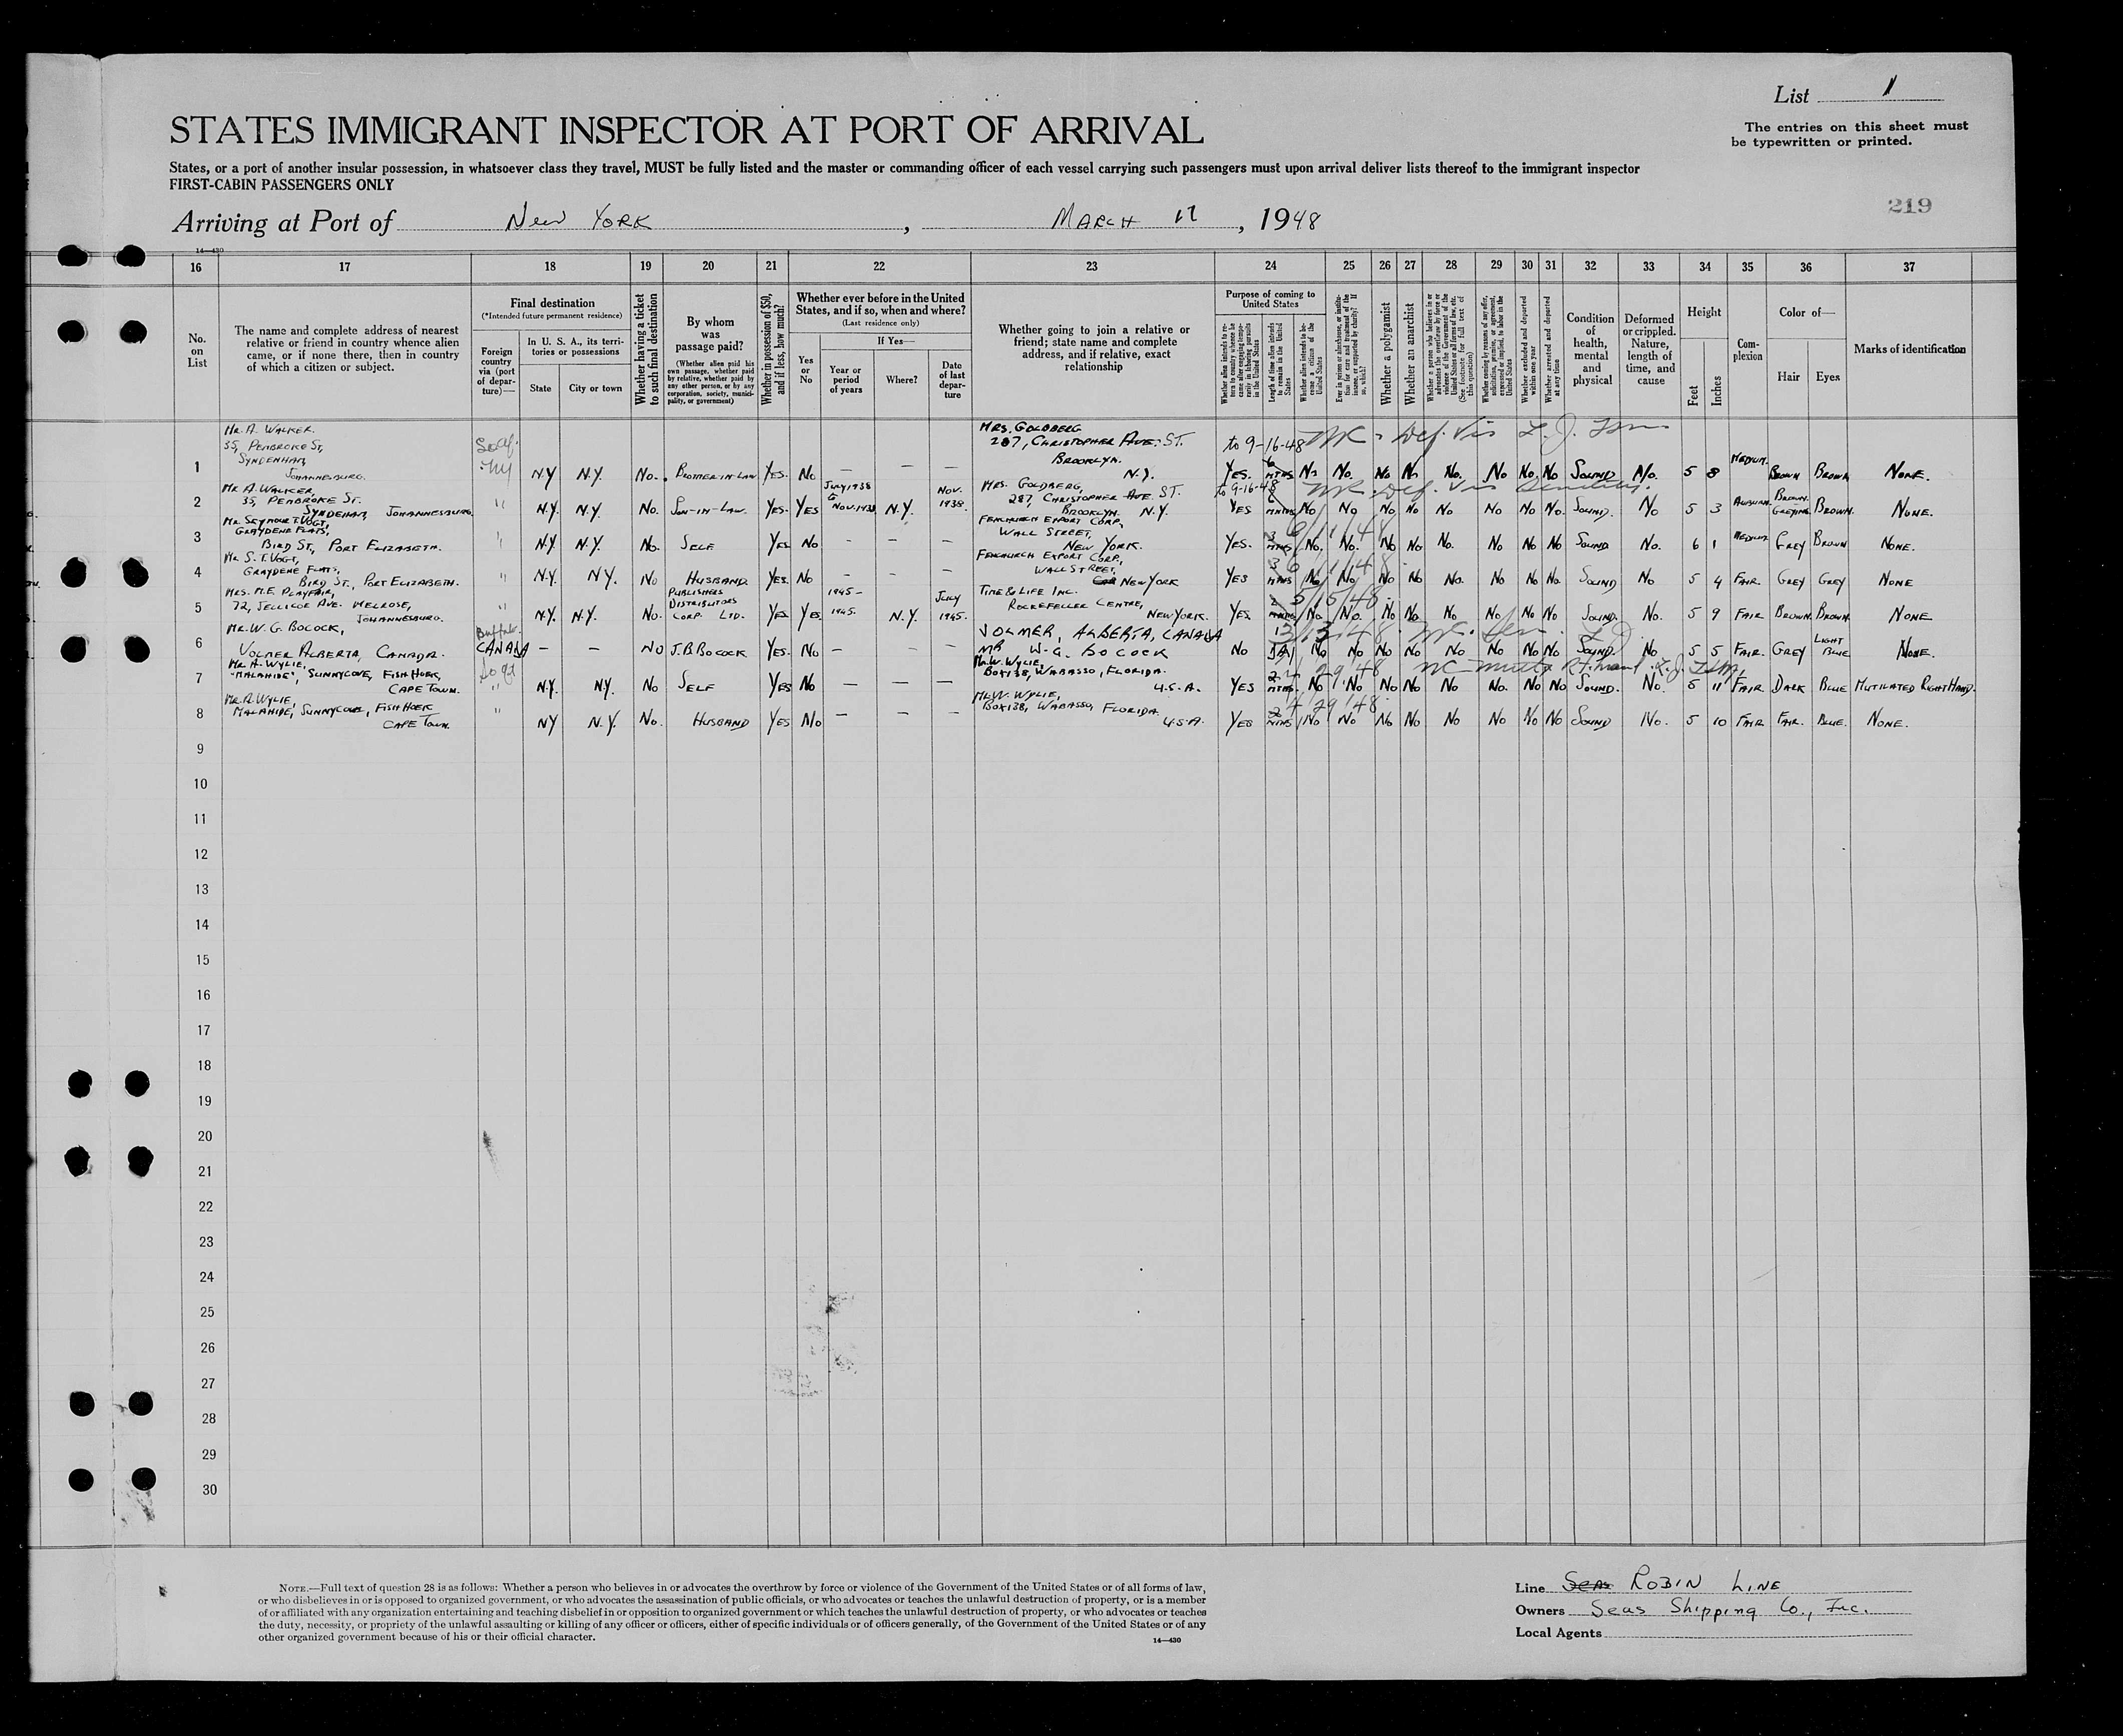 List 1
The entries on this sheet must
be typewritten or printed.
STATES IMMIGRANT INSPECTOR AT PORT OF ARRIVAL
States, or a port of another insular possession, in whatsoever class they travel, MUST be fully listed and the master or commanding officer of each vessel carrying such passengers must upon arrival deliver lists thereof to the immigrant inspector
FIRST-CABIN PASSENGERS ONLY
219
Arriving at Port of New York, March 17, 1948
14—430
16 17 18 19 20 21 22 23 24 25 26 27 28 29 30 31 32 33 34 35 36 37
No. on List
The name and complete address of nearest relative or friend in country whence alien came, or if none there, then in country of which a citizen or subject.
Final destination
(*Intended future permanent residence)
Foreign country via (port of departure)—
In U. S. A., its territories or possessions
State
City or town
Whether having a ticket to such final destination
By whom was passage paid?
(Whether alien paid his own passage, whether paid by relative, whether paid by any other person, or by any corporation, society, municipality, or government)
Whether in possession of $50, and if less, how much?
Whether ever before in the United States, and if so, when and where?
(Last residence only)
Yes or No
If Yes—
Year or period of years
Where?
Date of last departure
Whether going to join a relative or friend; state name and complete address, and if relative, exact relationship
Purpose of coming to United States
Whether alien intends to return to country whence he came after engaging temporarily in laboring pursuits in the United States
Length of time alien intends to remain in the United States
Whether alien intends to become a citizen of the United States
Ever in prison or almshouse, or institution for care and treatment of the insane, or supported by charity? If so, which?
Whether a polygamist
Whether an anarchist
Whether a person who believes in or advocates the overthrow by force or violence of the Government of the United States or all forms of law, etc. (See footnote for full text of this question)
Whether coming by reasons of any offer, solicitation, promise, or agreement, expressed or implied, to labor in the United States
Whether excluded and deported within one year
Whether arrested and deported at any time
Condition of health, mental and physical
Deformed or crippled. Nature, length of time, and cause
Height
Feet
Inches
Complexion
Color of—
Hair
Eyes
Marks of identification
1 Mr. A. Walker. 35, Pembroke St, Syndenham, Johannesburg. N.Y N.Y. No. Brother-in-Law Yes. No — — — Mrs. Goldberg 287, Christopher Ave. St. Brooklyn. N.Y. to 9-16-48 Yes. 6 mths No No. No No No. No No. No Sound No. 5 8 Medium. Brown Brown None.
2 Mr A. Walker, 35, Pembroke St. Syndenham, Johannesburg. " N.Y. N.Y. No. Son-in-Law. Yes. Yes July 1938 to Nov. 1938 N.Y. Nov. 1938. Mrs. Goldberg, 287, Christopher Ave. St. Brooklyn. N.Y. to 9-16-48 Yes 6 mths No No No. No No No No No. Sound. No 5 3 Brown Greying Brown. None.
3 Mr. Seymour T. Vogt, Graydene Flats, Bird St, Port Elizabeth. " N.Y. N.Y. No. Self Yes No — — — Fenchurch Export Corp, Wall Street, New York. 6/11/48 Yes. 3 mths No. No. No No No. No No No Sound No. 6 1 Medium Grey Brown None.
4 Mr S. T. Vogt, Graydene Flats, Bird St., Port Elizabeth. " N.Y. N.Y. No Husband Yes. No — — — Fenchurch Export Corp., Wall Street, New York 6/11/48 Yes 3 mths No No No No No. No No No. Sound No 5 4 Fair. Grey Grey None
5 Mrs. M.E. Playfair, 72, Jellicoe Ave. Melrose, Johannesburg. " N.Y. N.Y. No. Publishers Distributors Corp. Ltd. Yes Yes. 1945 - 1945. N.Y. July 1945. Time & Life Inc. Rockefeller Centre, New York. 5/15/48 Yes 2 mths No No. No No No No No No Sound. No. 5 9 Fair Brown Brown. None
6 Mr. W. G. Bocock, Volmer Alberta, Canada. Buffalo Canada — — No J.B. Bocock Yes. No — — — Volmer, Alberta, Canada Mr W. G. Bocock No No No No No No No No No Sound. No 5 5 Fair. Grey Light Blue None.
7 Mr. A. Wylie, "Malahide", Sunnycove, Fish Hoek, Cape Town. " N.Y. N.Y. No Self Yes No — — — Mr. W. Wylie, Box 138, Wabasso, Florida. U.S.A. Yes 2 mths. No No No No No No. No No Sound. No. 5 11 Fair Dark Blue Mutilated Right Hand.
8 Mr. A. Wylie, Malahide, Sunnycove, Fish Hoek Cape Town. " NY N.Y. No. Husband Yes No — — — Mr. W. Wylie, Box 138, Wabasso, Florida. U.S.A. 4/29/48 Yes 2 mths No No No No No No No No Sound No. 5 10 Fair Fair. Blue. None.
9
10
11
12
13
14
15
16
17
18
19
20
21
22
23
24
25
26
27
28
29
30
NOTE.—Full text of question 28 is as follows: Whether a person who believes in or advocates the overthrow by force or violence of the Government of the United States or of all forms of law,
or who disbelieves in or is opposed to organized government, or who advocates the assassination of public officials, or who advocates or teaches the unlawful destruction of property, or is a member
of or affiliated with any organization entertaining and teaching disbelief in or opposition to organized government or which teaches the unlawful destruction of property, or who advocates or teaches
the duty, necessity, or propriety of the unlawful assaulting or killing of any officer or officers, either of specific individuals or of officers generally, of the Government of the United States or of any
other organized government because of his or their official character.
14—430
Line Seas Robin Line
Owners Seas Shipping Co., Inc.
Local Agents